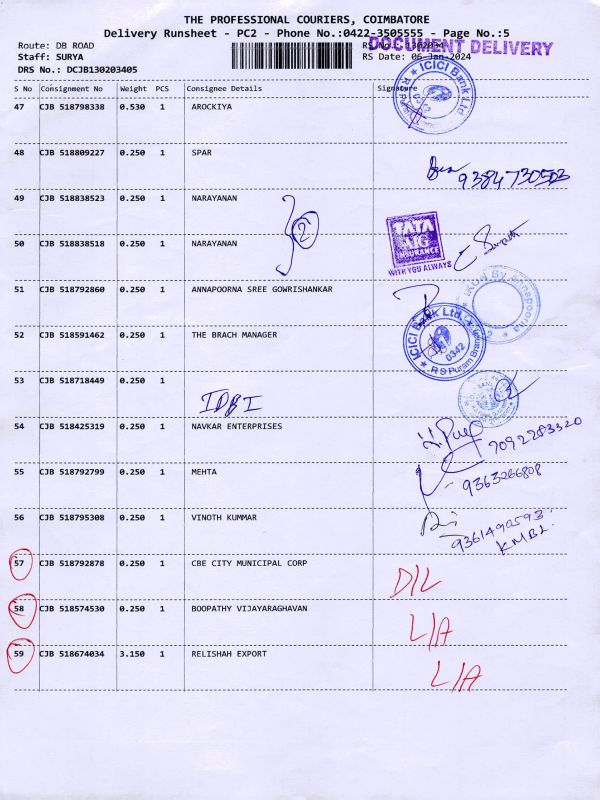 THE PROFESSIONAL COURIERS, COIMBATORE
Delivery Runsheet - PC2 - Phone No.:0422-3505555 - Page No.:5
Route: DB ROAD
RS No.: 1302034
DOCUMENT DELIVERY
Staff: SURYA
RS Date: 06-Jan-2024
DRS No.: DCJB130203405
S No Consignment No Weight PCS Consignee Details Signature
47 CJB 518798338 0.530 1 AROCKIYA
ICICI Bank Ltd
0342
48 CJB 518809227 0.250 1 SPAR
9384730503
49 CJB 518838523 0.250 1 NARAYANAN
2
TATA
AIG
INSURANCE
WITH YOU ALWAYS
50 CJB 518838518 0.250 1 NARAYANAN
51 CJB 518792860 0.250 1 ANNAPOORNA SREE GOWRISHANKAR
52 CJB 518591462 0.250 1 THE BRACH MANAGER
ICICI Bank Ltd.
0342
RS Puram Branch
53 CJB 518718449 0.250 1
IDBI
54 CJB 518425319 0.250 1 NAVKAR ENTERPRISES
7092283320
55 CJB 518792799 0.250 1 MEHTA
9363266808
56 CJB 518795308 0.250 1 VINOTH KUMMAR
9361490593
KMBL
57 CJB 518792878 0.250 1 CBE CITY MUNICIPAL CORP
D/L
58 CJB 518574530 0.250 1 BOOPATHY VIJAYARAGHAVAN
L/A
59 CJB 518674034 3.150 1 RELISHAH EXPORT
L/A